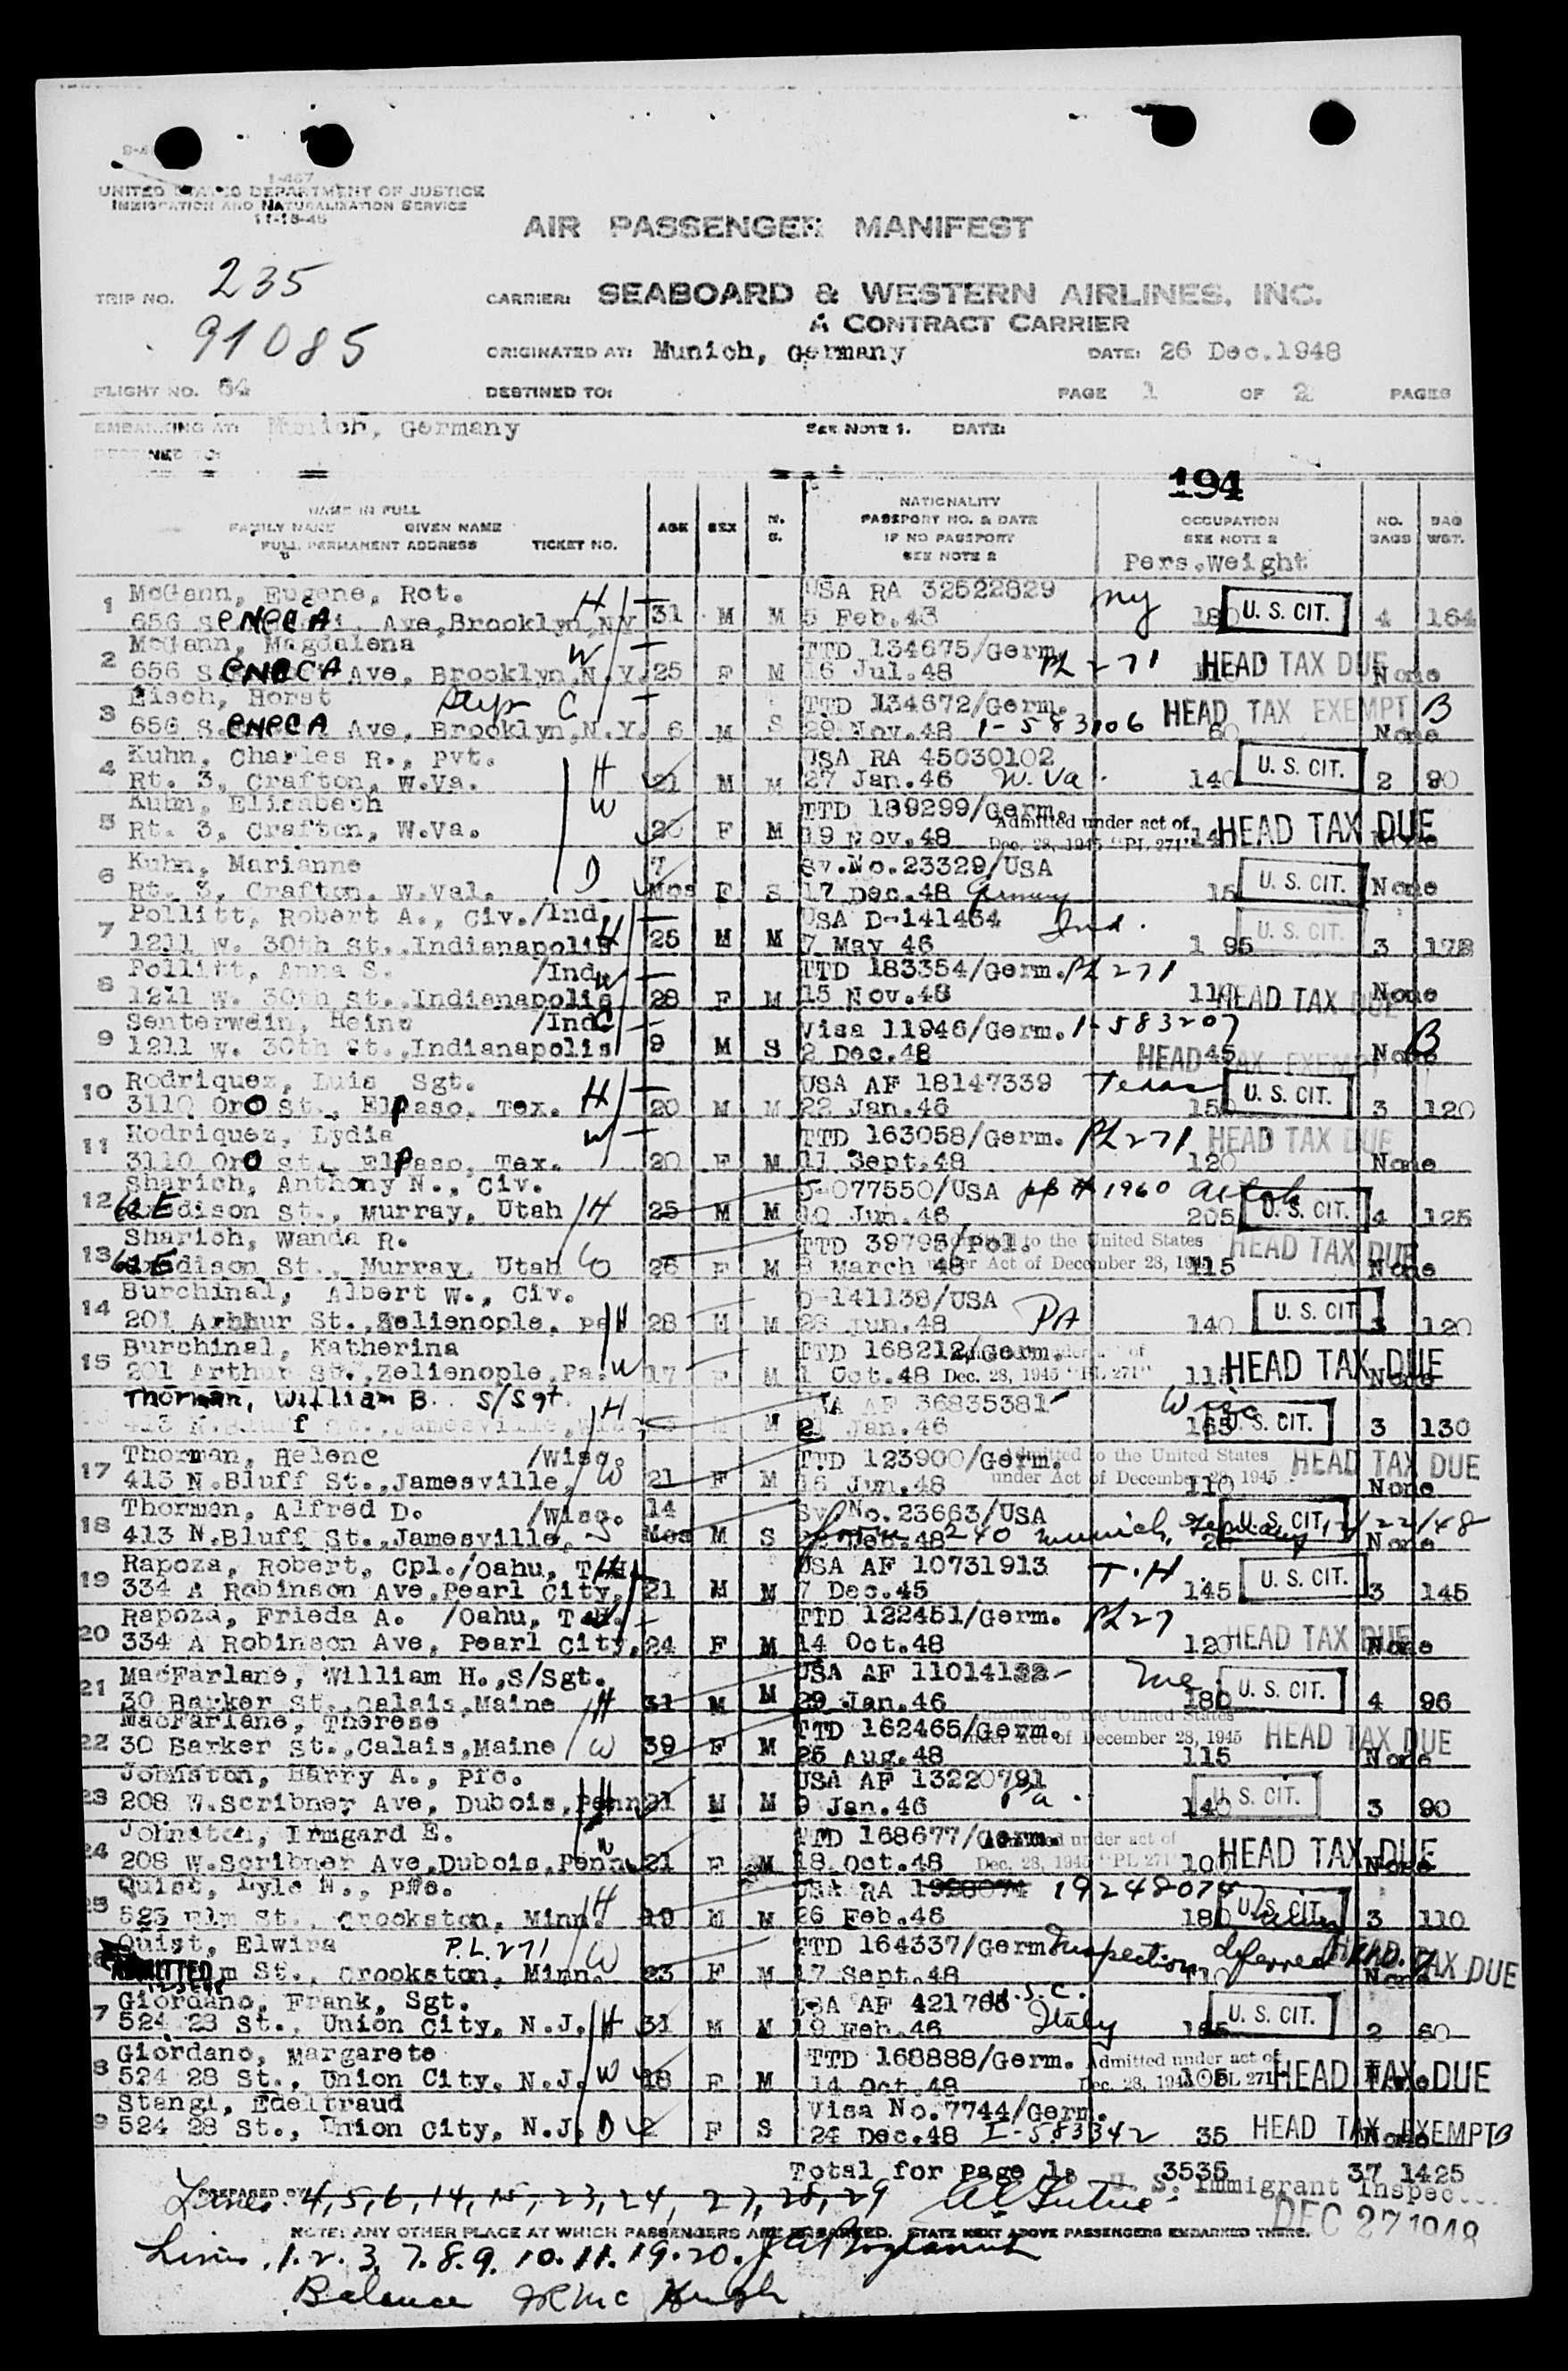 I-467
UNITED STATES DEPARTMENT OF JUSTICE
IMMIGRATION AND NATURALIZATION SERVICE
11-15-45
AIR PASSENGER MANIFEST
TRIP NO. 235
CARRIER: SEABOARD & WESTERN AIRLINES, INC.
A CONTRACT CARRIER
91085
ORIGINATED AT: Munich, Germany DATE: 26 Dec.1948
FLIGHT NO. 64 DESTINED TO: PAGE 1 OF 2 PAGES
EMBARKING AT: Munich, Germany SEE NOTE 1. DATE:
DESTINED TO:
194
NAME IN FULL
FAMILY NAME GIVEN NAME
FULL PERMANENT ADDRESS TICKET NO. AGE SEX M. S. NATIONALITY PASSPORT NO. & DATE IF NO PASSPORT SEE NOTE 2 OCCUPATION SEE NOTE 2 NO. BAGS BAG WGT.
Pers.Weight
1 McGann, Eugene, Rct. H USA RA 32522829 NY
656 SENECA Ave,Brooklyn,NY 31 M M 5 Feb.43 180 U. S. CIT. 4 164
2 McGann, Magdalena W TTD 134675/Germ.
656 SENECA Ave, Brooklyn,N.Y. 25 F M 16 Jul.48 PL 271 HEAD TAX DUE None
3 Eisch, Horst Step C TTD 134672/Germ. HEAD TAX EXEMPT B
656 SENECA Ave, Brooklyn,N.Y. 6 M S 29 Nov.48 I-583106 60 None
4 Kuhn, Charles R., Pvt. H USA RA 45030102
Rt. 3, Crafton, W.Va. 21 M M 27 Jan.46 W. Va. 140 U. S. CIT. 2 90
5 Kuhn, Elisabeth W TTD 189299/Germ.
Rt. 3, Crafton, W.Va. F M 19 Nov.48 Admitted under act of Dec. 28, 1945 "PL 271" HEAD TAX DUE
6 Kuhn, Marianne D 7 Sv.No.23329/USA
Rt. 3, Crafton, W.Val. Mos F S 17 Dec.48 Germany 15 U. S. CIT. None
7 Pollitt, Robert A., Civ./Ind. H USA D-141464 Ind.
1211 W. 30th St.,Indianapolis 25 M M 7 May 46 1 95 U. S. CIT. 3 178
8 Pollitt, Anna S. /Ind. W TTD 183354/Germ. PL 271
1211 W. 30th St.,Indianapolis 28 F M 15 Nov.48 110 HEAD TAX DUE None
9 Senterwein, Heinz /Ind. C Visa 11946/Germ. I-583207 B
1211 W. 30th St.,Indianapolis 9 M S 2 Dec.48 45 HEAD TAX EXEMPT None
10 Rodriquez, Luis Sgt. H USA AF 18147339 Texas
3110 Oro St., Elpaso, Tex. 20 M M 22 Jan.46 150 U. S. CIT. 3 120
11 Rodriquez, Lydia W TTD 163058/Germ. PL 271 HEAD TAX DUE
3110 Oro St., Elpaso, Tex. 20 F M 11 Sept.48 120 None
12 Sharich, Anthony N., Civ. D-077550/USA pp # 1960
62 E Madison St., Murray, Utah H 25 M M 10 Jun.46 205 U. S. CIT. 4 125
13 Sharich, Wanda R. TTD 39795/Pol. Admitted to the United States HEAD TAX DUE
62 E Madison St., Murray, Utah W 26 F M 8 March 48 under Act of December 28, 1945 115 None
14 Burchinal, Albert W., Civ. D-141138/USA
201 Arthur St.,Zelienople, Pa H 28 M M 28 Jun.48 PA 140 U. S. CIT. 3 120
15 Burchinal, Katherina TTD 168212/Germ.
201 Arthur St.,Zelienople,Pa. W 17 F M 1 Oct.48 Dec. 28, 1945 "PL 271" HEAD TAX DUE None
Thorman, William B. S/Sgt H USA AF 36835381 Wisc
413 N.Bluff St.,Jamesville, M 21 Jan.46 165 U. S. CIT. 3 130
17 Thorman, Helene /Wisc. TTD 123900/Germ. Admitted to the United States HEAD TAX DUE
413 N.Bluff St.,Jamesville, W 21 F M 16 Jun.48 under Act of December 28, 1945 110 None
18 Thorman, Alfred D. /Wisc. 14 Sv.No.23663/USA U. S. CIT.
413 N.Bluff St.,Jamesville, S Mos M S Dec.48 240 Munich, Germany 12/22/48 None
19 Rapoza, Robert, Cpl./Oahu, T.H. USA AF 10731913 T.H.
334 A Robinson Ave,Pearl City, 21 M M 7 Dec.45 145 U. S. CIT. 3 145
20 Rapoza, Frieda A. /Oahu, T.H. TTD 122451/Germ. PL 27
334 A Robinson Ave, Pearl City, 24 F M 14 Oct.48 120 HEAD TAX DUE None
21 MacFarlane, William H.,S/Sgt. USA AF 11014132 Me
30 Barker St.,Calais,Maine H 31 M M 29 Jan.46 180 U. S. CIT. 4 96
22 MacFarlane, Therese TTD 162465/Germ. Admitted to the United States
30 Barker St.,Calais,Maine W 39 F M 26 Aug.48 under Act of December 28, 1945 115 HEAD TAX DUE None
23 Johnston, Harry A., Pfc. USA AF 13220791
208 W.Scribner Ave, Dubois,Penn H 21 M M 9 Jan.46 Pa. 140 U. S. CIT. 3 90
24 Johnston, Irmgard E. TTD 168677/Germ. Admitted under act of
208 W.Scribner Ave,Dubois,Penn. W 21 F M 18 Oct.48 Dec. 28, 1945 "PL 271" 100 HEAD TAX DUE None
25 Quist, Lyle N., Pfc. USA RA 19248074
523 Elm St., Crookston, Minn. H 19 M M 26 Feb.46 180 U. S. CIT. 3 110
Quist, Elwira P.L. 271 W TTD 164337/Germ Inspection deferred HEAD TAX DUE
ADMITTED m St., Crookston, Minn. 23 F M 17 Sept.48 110 None
7 Giordano, Frank, Sgt. USA AF 421765 U.S.C.
524 28 St., Union City, N.J. H 31 M M 19 Feb.46 Italy U. S. CIT. 2 60
8 Giordano, Margarete TTD 168888/Germ. Admitted under act of
524 28 St., Union City, N.J. W 18 F M 14 Oct.48 Dec. 28, 1945 "PL 271" 105 HEAD TAX DUE
9 Stangl, Edeltraud Visa No.7744/Germ.
524 28 St., Union City, N.J. D 2 F S 24 Dec.48 I-583342 35 HEAD TAX EXEMPT B None
Total for Page 1: 3535 37 1425
PREPARED BY U. S. Immigrant Inspec
Lines 4, 5, 6, 14, 15, 23, 24, 27, 28, 29
DEC 27 1948
NOTE: ANY OTHER PLACE AT WHICH PASSENGERS ARE EMBARKED. STATE NEXT ABOVE PASSENGERS EMBARKED THERE.
Lines 1. 2. 3. 7. 8. 9. 10. 11. 19. 20.
Balance McHugh